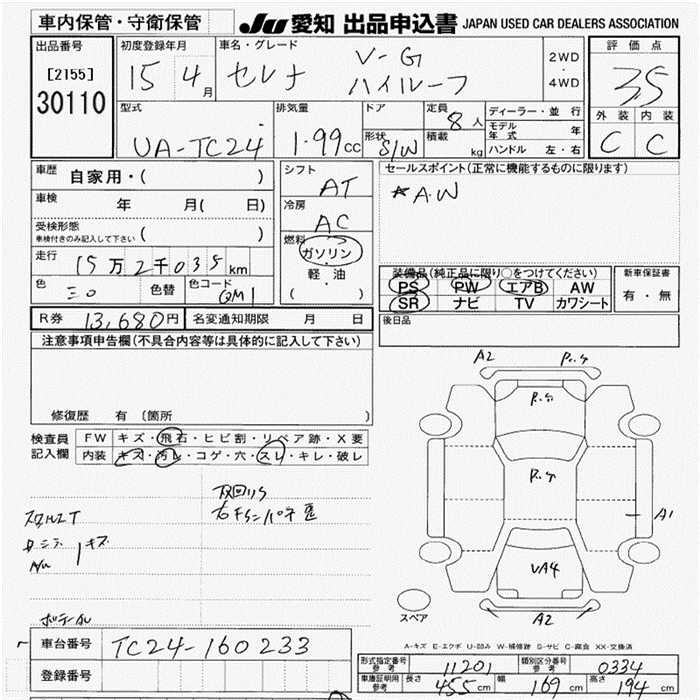 車内保管・守衛保管
JU 愛知 出品申込書 JAPAN USED CAR DEALERS ASSOCIATION
出品番号
[2155]
30110
初度登録年月
15 4月
車名・グレード
セレナ V-G
ハイルーフ
2WD
・
4WD
評価点
35
外装 内装
C C
型式
UA-TC24
排気量
1.99cc
ドア
形状 S/W
定員 8人
積載 kg
ディーラー・並行
モデル年式 年
ハンドル 左・右
車歴 自家用・( )
車検 年 月( 日)
受検形態
車検付きのみ記入して下さい ( )
走行 15万2千035km
色 色替 色コード QM1
シフト
AT
冷房
AC
燃料
ガソリン
軽・油
( )
セールスポイント(正常に機能するものに限ります)
*A.W
装備品(純正品に限り○をつけてください)
PS PW エアB AW
SR ナビ TV カワシート
新車保証書
有・無
R券 13,680円 名変通知期限 月 日
後日品
注意事項申告欄(不具合内容等は具体的に記入して下さい)
修復歴 有 (箇所 )
検査員
記入欄
FW キズ・飛石・ヒビ割・リペア跡・X要
内装 キズ・汚レ・コゲ・穴・スレ・キレ・破レ
A2
A1
VA4
A2
スペア
A-キズ E-エクボ U-凹み W-補修跡 S-サビ C-腐食 XX-交換済
車台番号 TC24-160233
登録番号
形式指定番号 参考 11201 類別区分番号 参考 0334
車庫証明用 参考 長さ 455cm 幅 169cm 高さ 194cm